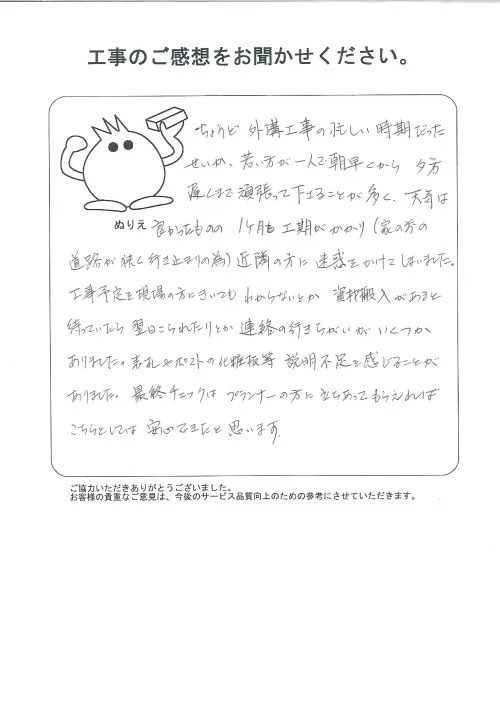 工事のご感想をお聞かせください。
ちょうど 外構工事の忙しい時期だった
せいか、若い方が一人で朝早くから 夕方
遅くまで頑張って下さることが多く、天気は
ぬりえ
良かったものの 1ヶ月も工期がかかり(家の前の
道路が狭く行き止まりの為)近隣の方に迷惑をかけてしまいました。
工事予定を現場の方にきいても わからないとか 資材搬入があると
待っていたら翌日こられたりとか連絡の行きちがいがいくつか
ありました。表札やポストの化粧板等 説明不足を感じることが
ありました。最終チェックは プランナーの方に立ちあってもらえれば
こちらとしては 安心できたと思います。
ご協力いただきありがとうございました。
お客様の貴重なご意見は、今後のサービス品質向上のための参考にさせていただきます。